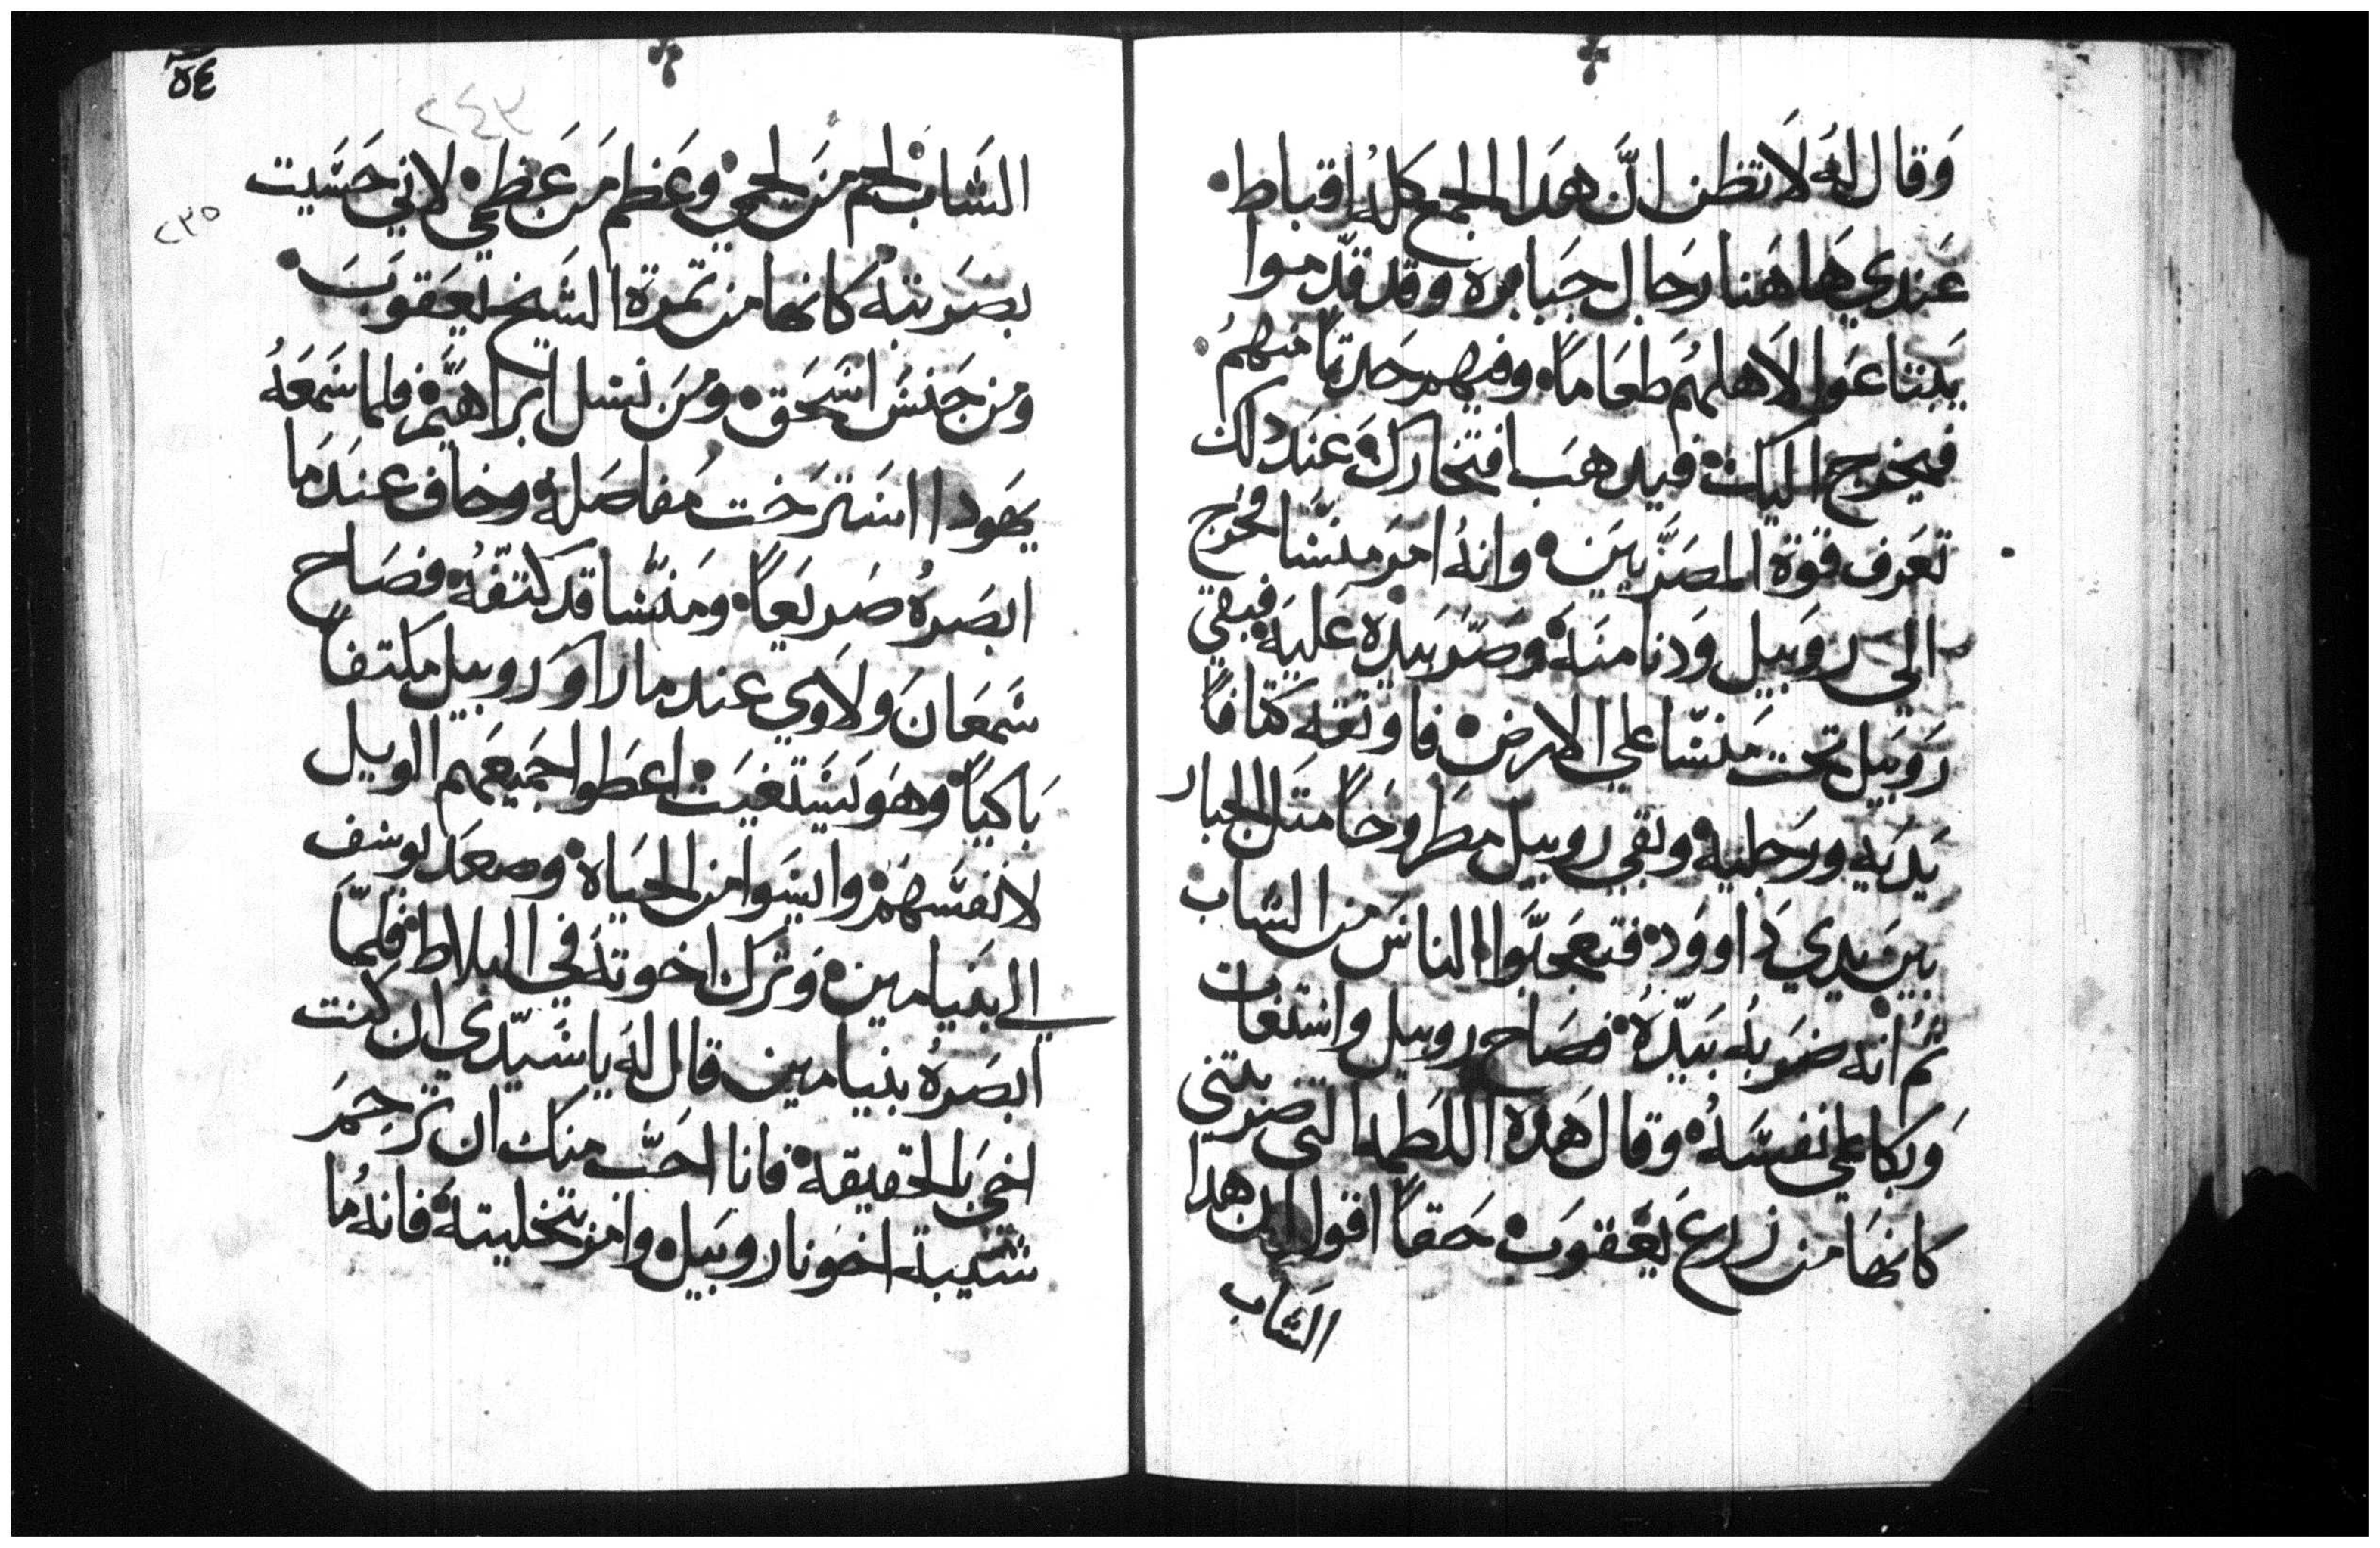 وَقال لهُ لَا تظن انَّ هَدا الجمع كلهُ اقباط
عَندي هَا هَنا رَجال جَبابره وقد قدّموا
يَبتاعَوا لَاهلهُم طعَاماً وفيهم حَدتاً منهمُ
فيخرج اليك فيدهَب افتخارك وعَند دلك
تعَرف قوة المصَرّيين وانهُ امَر منسّا فخرَج
الي روَبيل وَدنا منهَ وَضَرَ بَيدْه عَليه فبقي
رَوبَيل تحَت مَنسّا علي الارض فاوتقه كتافاً
يَديَه ورَجليه وبقي روبيل مطَروحَاً متل الجبار
بين يَدي دَاووَد فتعجبَّوا الناسَ من الشاب
تُم انه ضَربهُ بَيدّهُ فصَاح روبيل واستغات
وَبكا علي نفسَهُ وقال هَده اللطمه التي ضربتني
كانهَا من زرع يَعَقوَب حَقاً اقول ان هدا
الشَاب
٥٤
٢٤٣
الشَاب لحم مَن لحمي وعَظم مَن عَظمي لاني حَسّيت
٢٣٥
بضَربته كانها من تمرة الشَيخ يَعَقوَب
ومن جَنسَ اسَحَق ومَن نسل ابَراهَيَم فلما سَمَعَهُ
يَهَودا استَرَخت مَفاصَله وخاف عنَدَما
ابصَرهُ صَريَعاً ومَنسّا قد كَتفهُ فصَاح
سَمَعَانَ ولَاوي عند ما راوَ روبيل مكتفاً
بَاكياً وهَو يَستغيَت اعطَوا جَميعَهم الويل
لانفسَهَم وايسَوا من الحيَاه وصعَد يوسَف
الي بنَيامين وَترَك اخوته في البلاط فلمّا
ابصَرهُ بنيامين قال لهَ يا سَيّدي ان كنت
اخي بَالحقيقه فانا احَبّ منك ان ترَحِمَ
شيبة اخوَنا روبَيل وامر بتخليته فانهُ ما